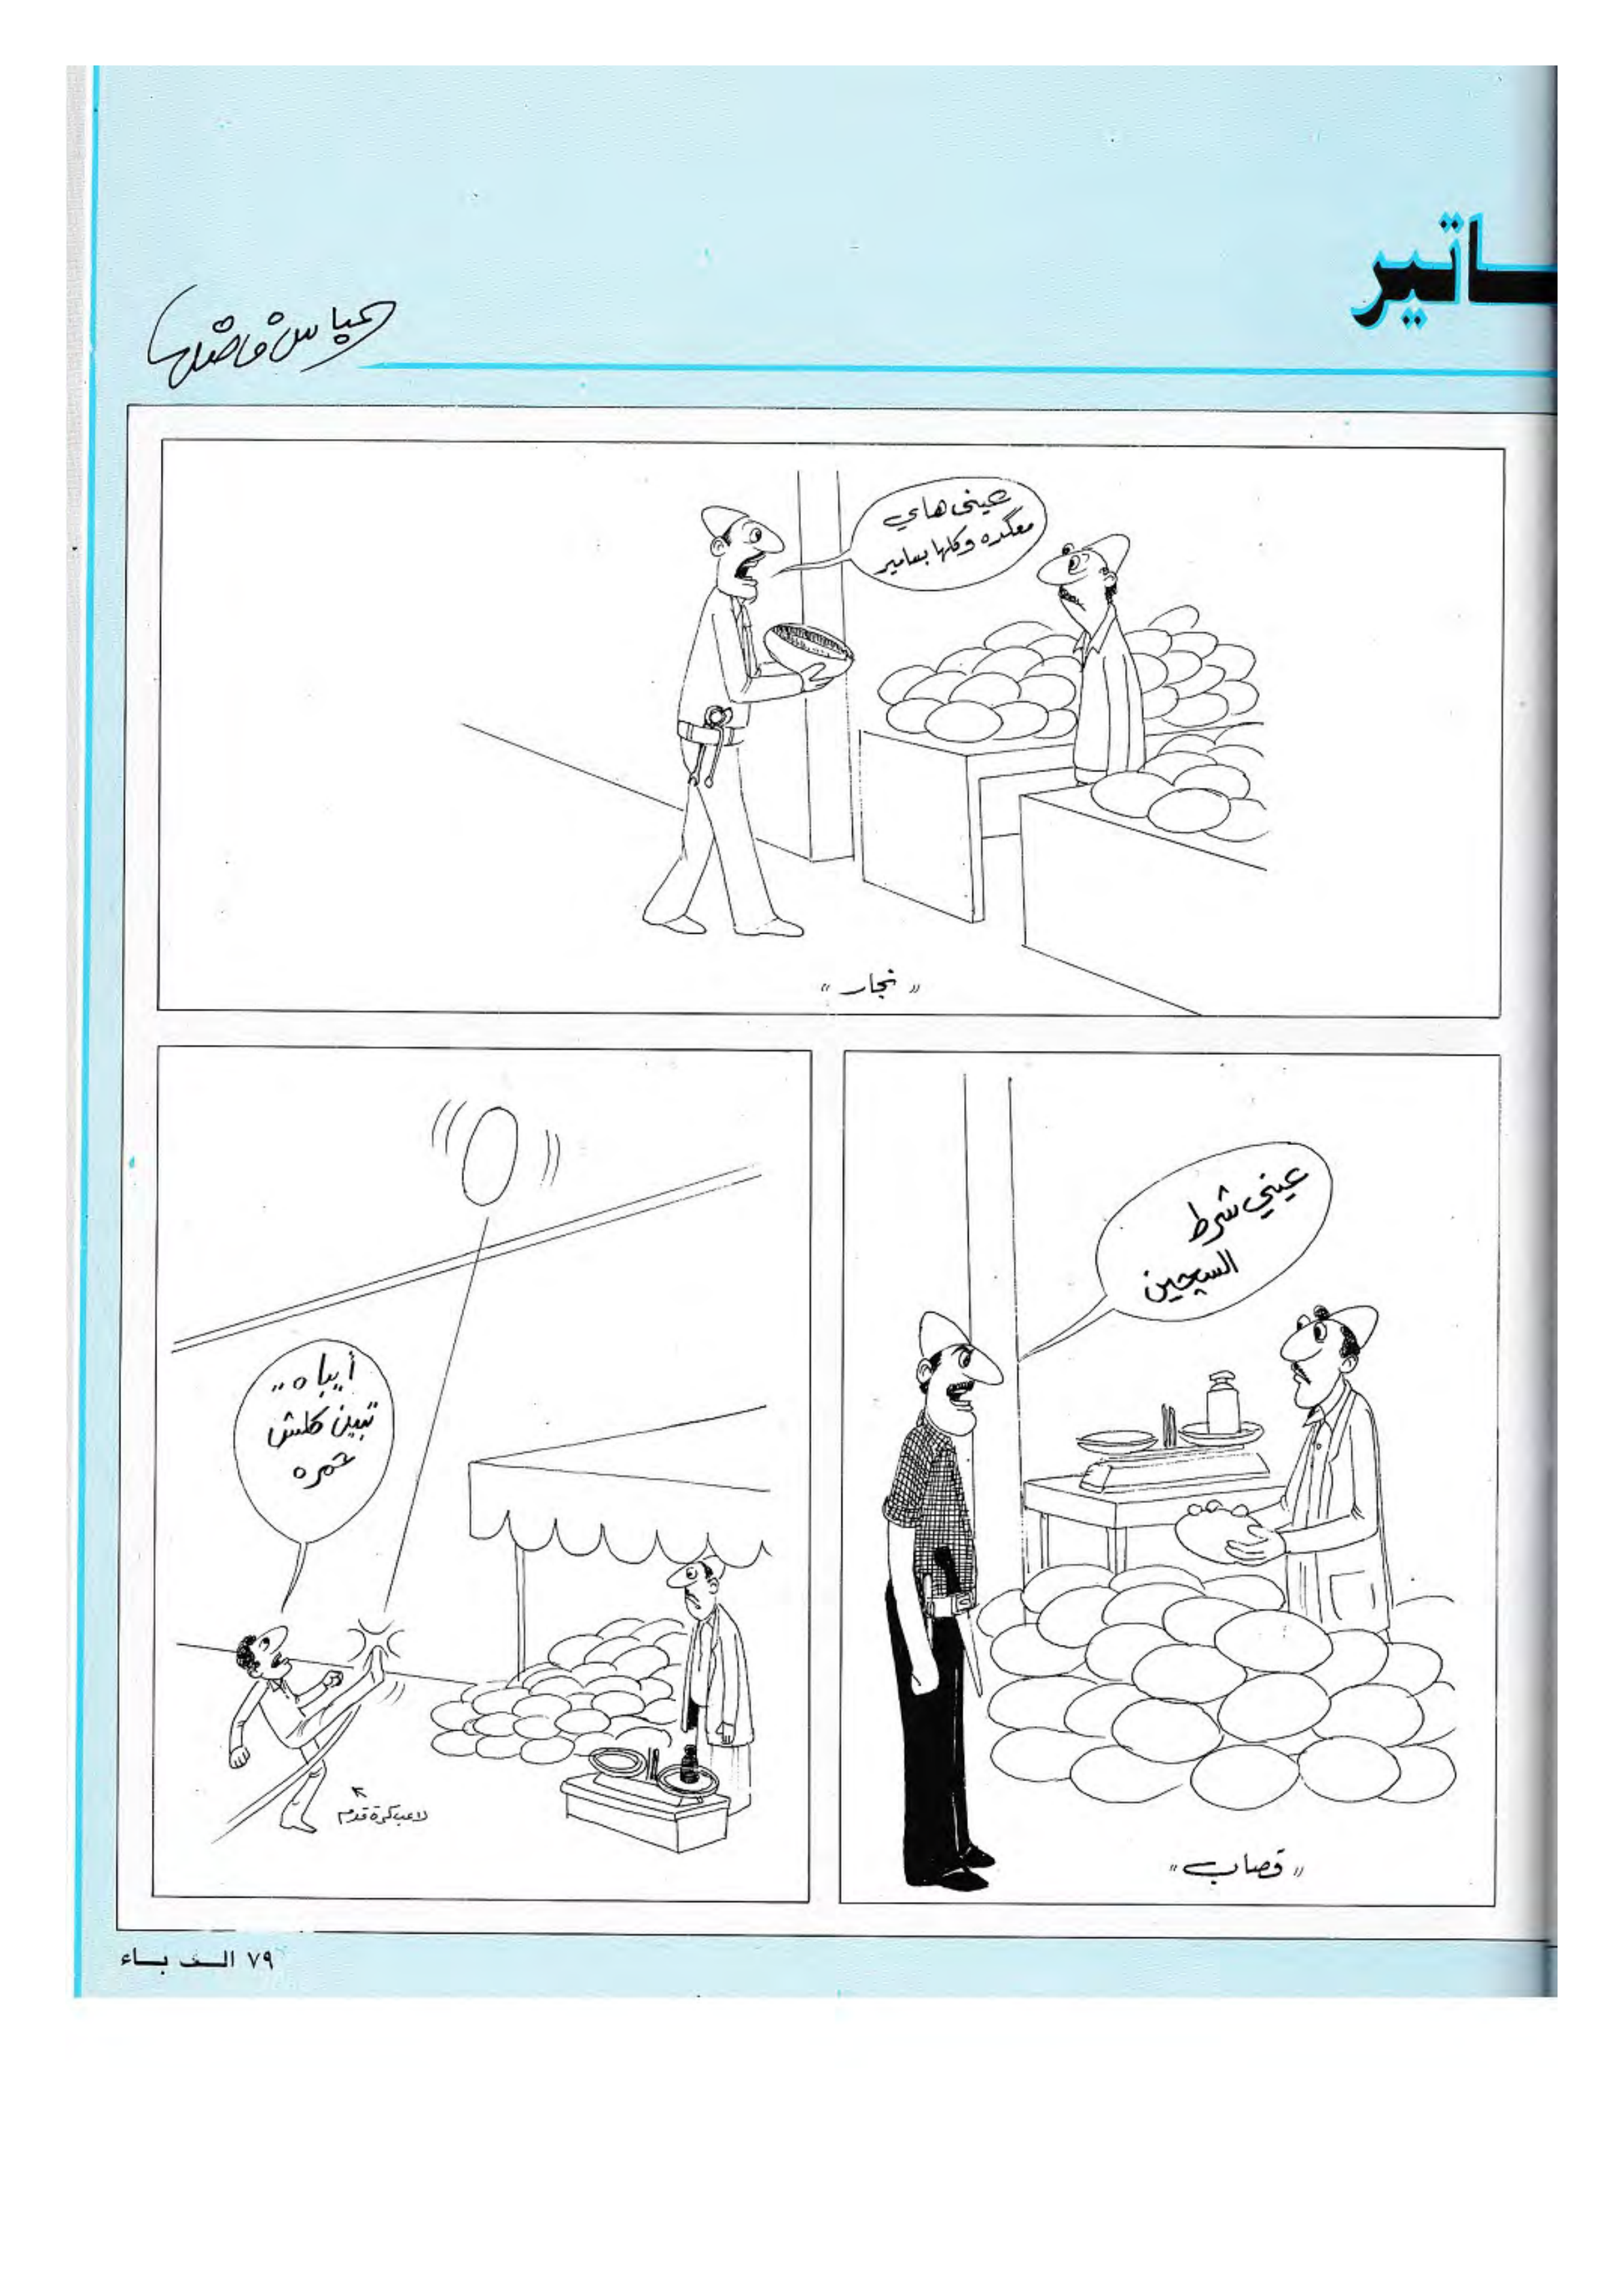 ـاتير
عباس فاضل
عيني هاي
معگده وكلها بسامير
" نجار "
عيني شرط
السچين
" قصاب "
أيباه..
تبين كلش
حمره
لاعب كرة قدم
٧٩ الف باء